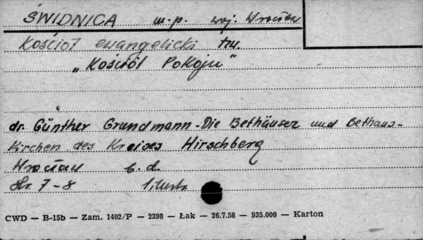 ŚWIDNICA m.p. woj. Wrocław
Kościół ewangelicki tzw.
„Kościół Pokoju"
dr. Günther Grundmann - Die Bethäuser und Bethaus-
Kirchen des Kreises Hirschberg
Wrocław b.d.
Str. 7-8 1 ilustr.
CWD — B-15b — Zam. 1402/P — 2398 — Łak — 26.7.58 — 935.000 — Karton